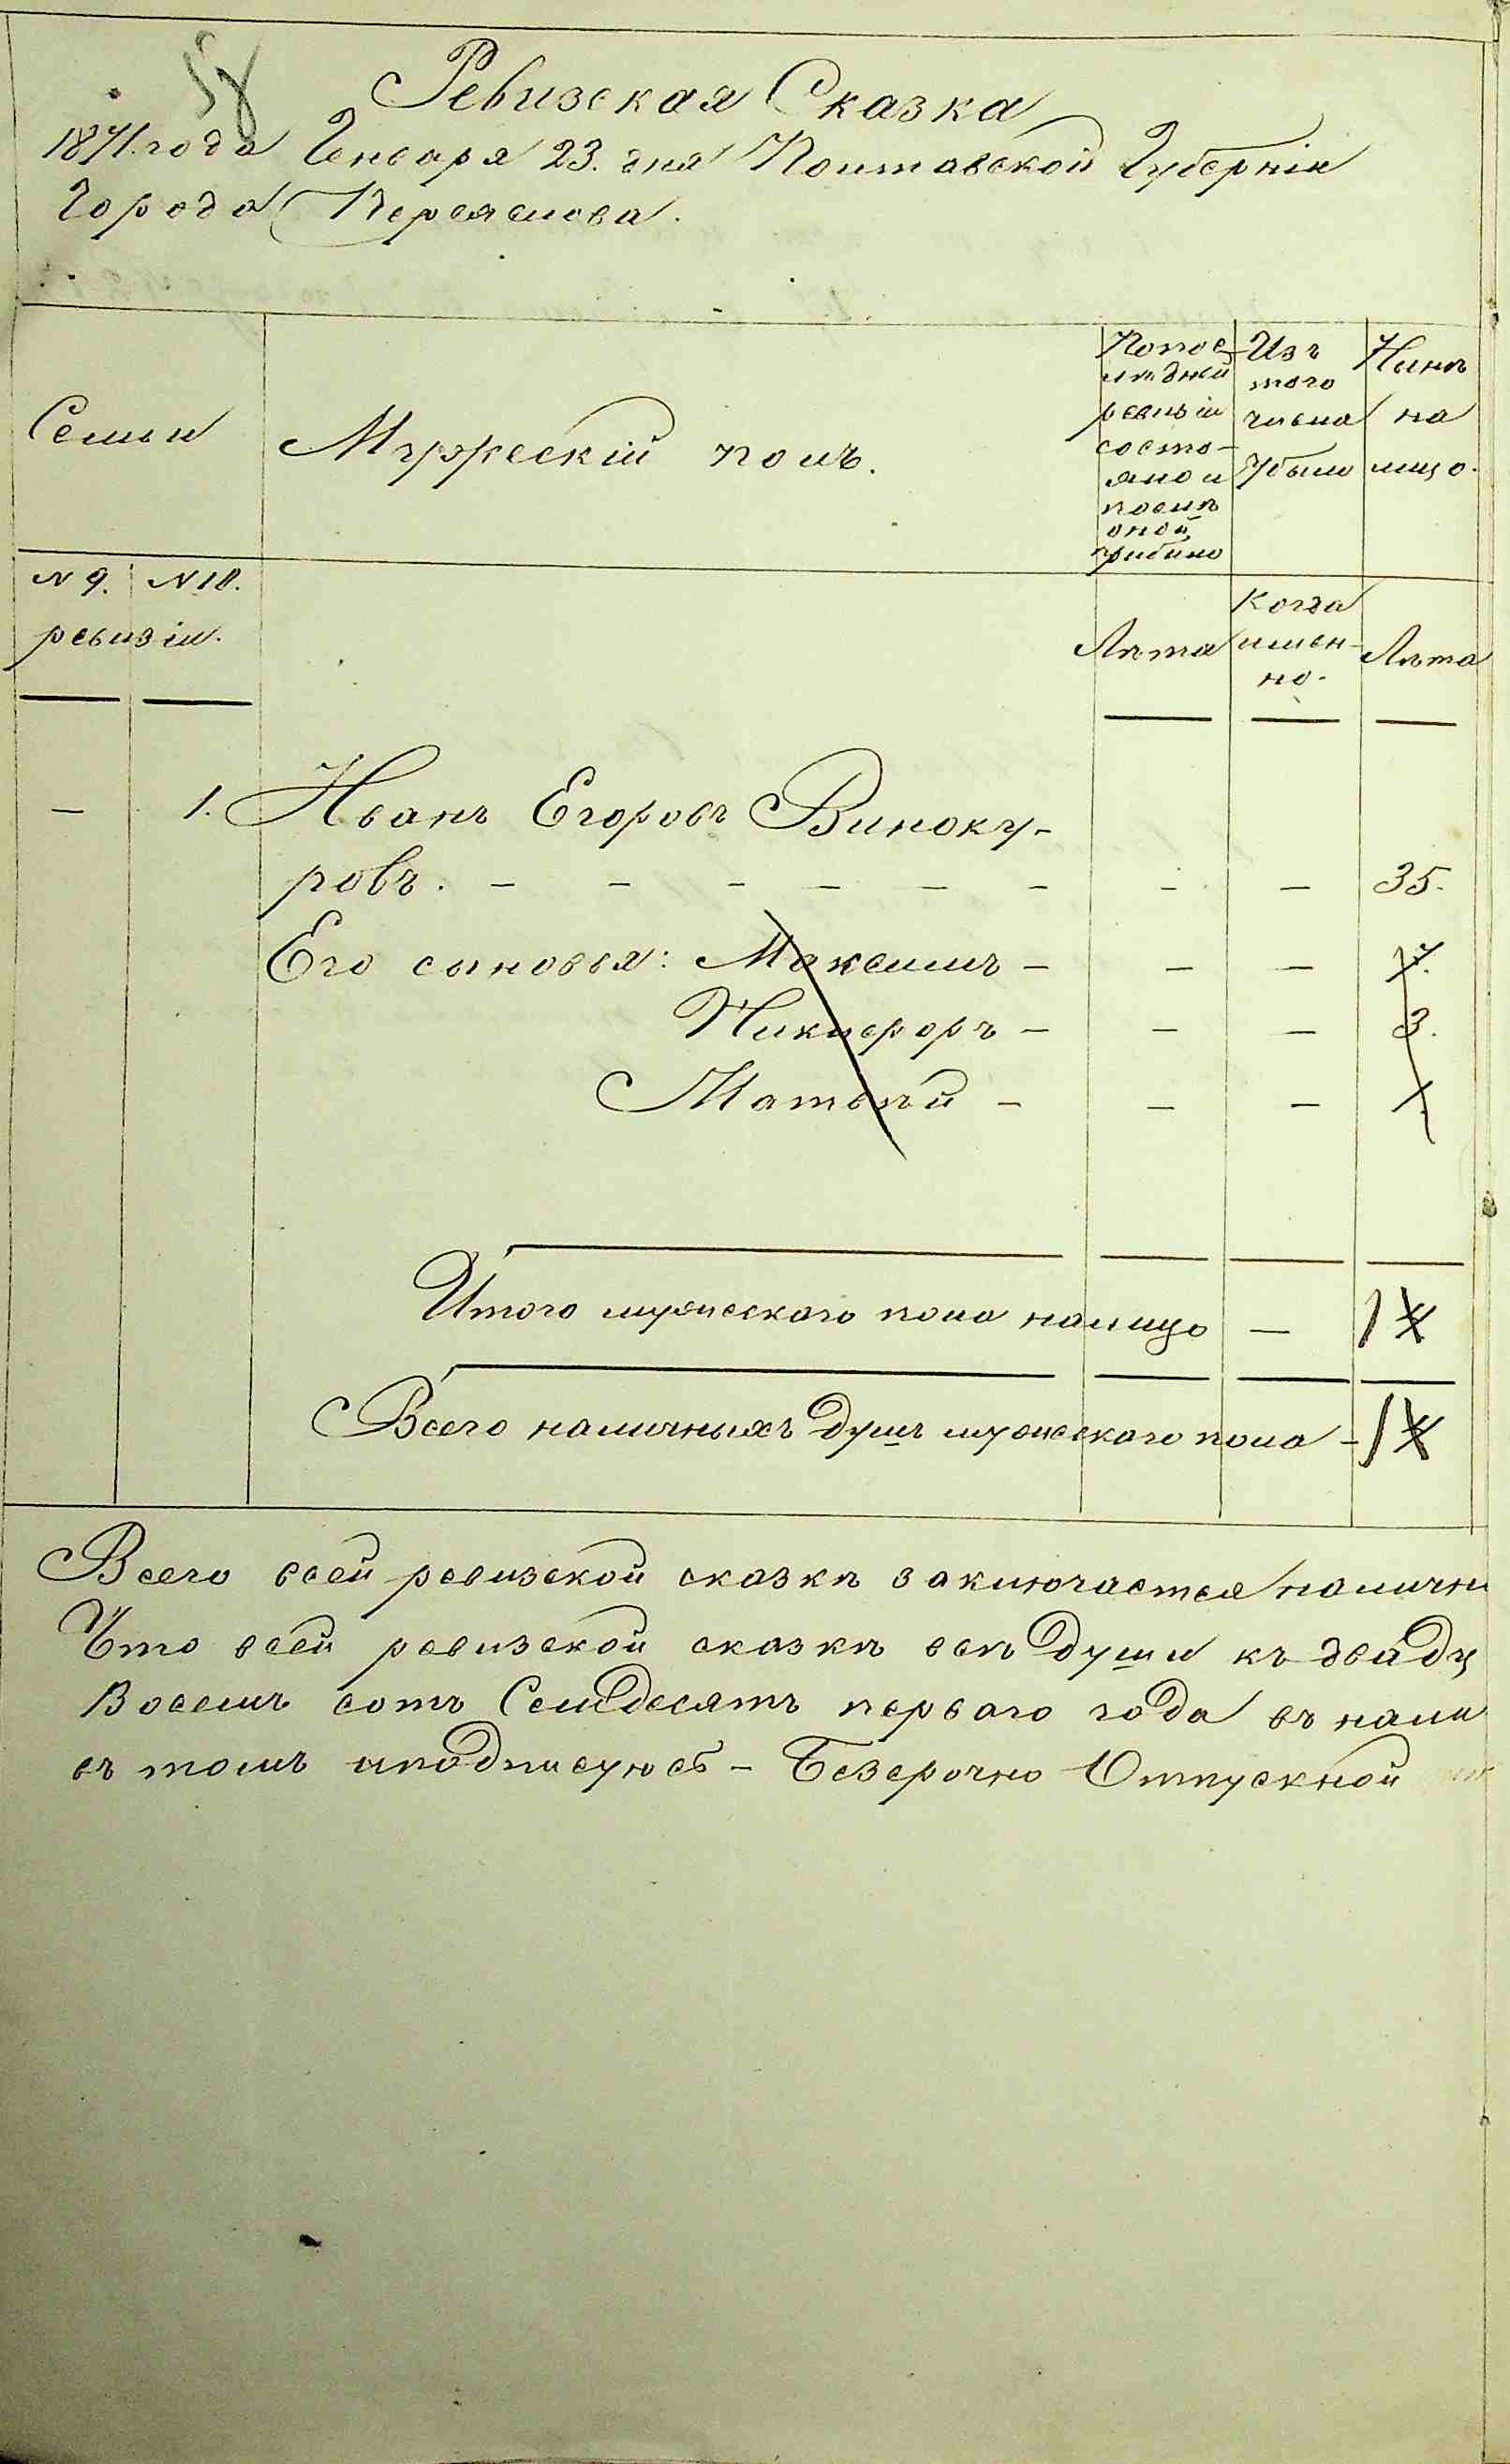 58
Ревизская Сказка
1871. года Генваря 23. дня Полтавской Губерніи
Города Переяслова.
Семьи
Мужескій полъ.
По пос-
лѣдней
ревизіи
состо-
яло и
послѣ
оной
прибыло
Изъ
того
числа
Убыло
Нынѣ
на
лицо.
N 9. N 10.
ревизіи.
Лѣта
Когда
имен-
но.
Лѣта
— 1. Иванъ Егоровъ Виноку-
ровъ. - - - - - - - — 35.
Его сыновья: Максимъ - — — 7.
Никифоръ - — — 3.
Матвѣй - — — 1.
Итого мужескаго пола налицо — 1 4
Всего наличныхъ душъ мужескаго пола - 1 4
Всего всей ревизской сказкѣ заключается наличн
Что всей ревизской сказкѣ всѣ души къ двадц
Восемь сотъ Семдесятъ перваго года въ нали
въ томъ иподписуюсь - Безсрочно Отпускной